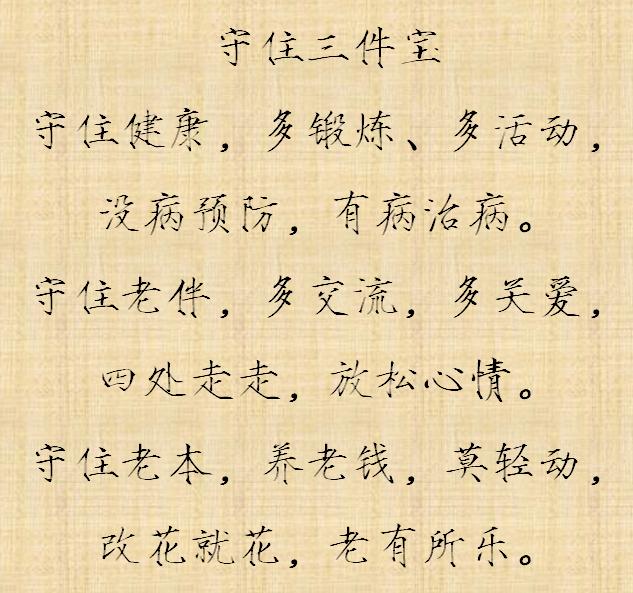 守住三件宝
守住健康，多锻炼、多活动，
没病预防，有病治病。
守住老伴，多交流，多关爱，
四处走走，放松心情。
守住老本，养老钱，莫轻动，
改花就花，老有所乐。